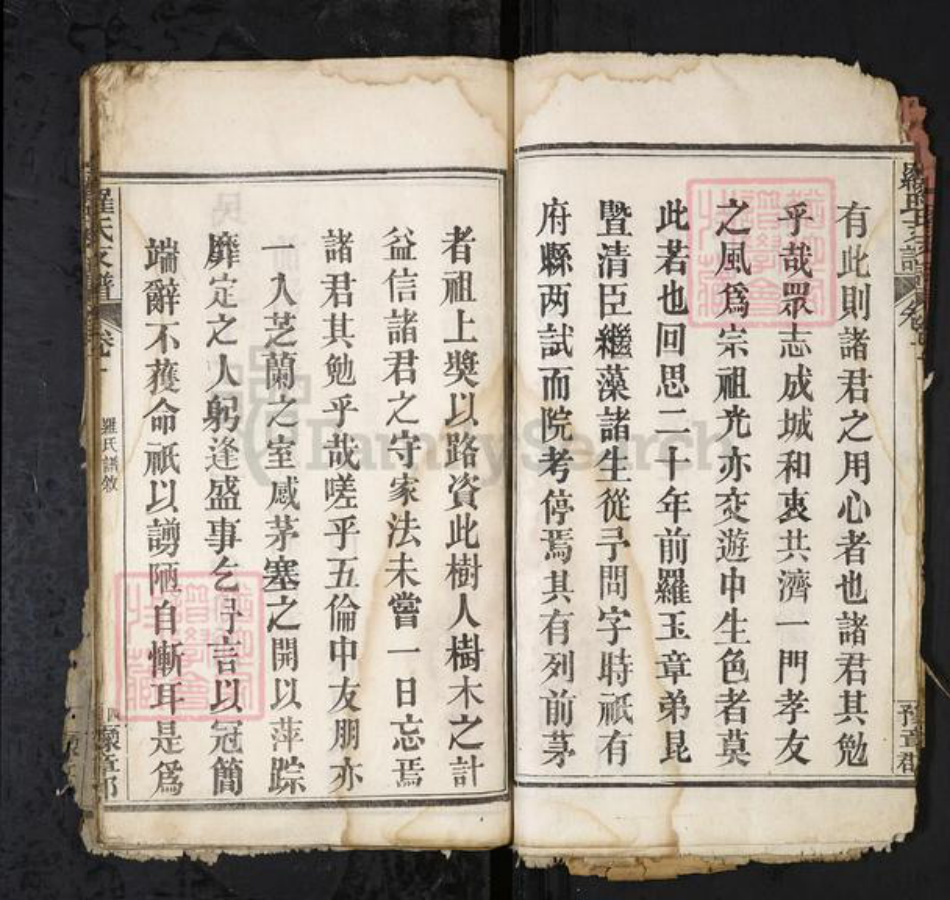 有此則諸君之用心者也諸君其勉
乎哉眾志成城和衷共濟一門孝友
之風爲宗祖光亦交遊中生色者莫
此若也回思二十年前羅玉章弟昆
暨清臣繼藻諸生從予問字時祇有
府縣两試而院考停焉其有列前茅
者祖上獎以路資此樹人樹木之計
益信諸君之守家法未嘗一日忘焉
諸君其勉乎哉嗟乎五倫中友朋亦
一入芝蘭之室感茅塞之開以萍踪
靡定之人躬逢盛事乞予言以冠簡
端辭不獲命祇以謭陋自慚耳是爲
羅氏支譜
卷十
羅氏譜敘
四
豫章郡
FamilySearch